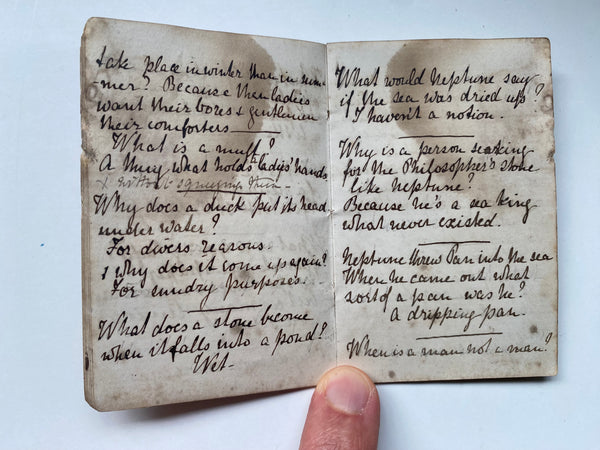 take place in winter than in sum
mer? Because then ladies
want their boxes & gentlemen
their comforters
What is a muff?
A thing what holds a ladies' hands
& without squeezing them -
Why does a duck put its head
under water?
For divers reasons.
& why does it come up again?
For sundry purposes.
What does a stone become
when it falls into a pond?
Wet -
What would Neptune say
if the sea was dried up?
I haven't a notion.
Why is a person seaking
for the Philosopher's stone
like Neptune?
Because he's a sea king
what never existed.
Neptune threw Pan into the sea
When he came out what
sort of a pan was he?
A dripping pan.
When is a man not a man?